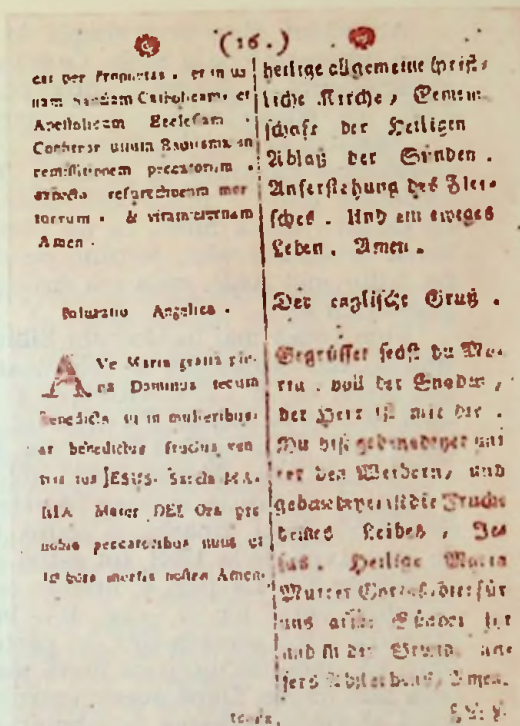 (16.)
est per Prophetas. et in u-
nam sanctam Catholicam, et
Apostolicam Ecclesiam.
Confiteor unum Baptisma in
remissionem peccatorum.
expecto resurectionem mor
tuorum. & vitam æternam
Amen.
Salutatio Angelica.
AVe Maria gratia ple-
na Dominus tecum
benedicta tu in mulieribus
et benedictus fructus ven
tris tui JESUS. Sancta MA-
RIA Mater DEI Ora pro
nobis peccatoribus nunc et
in hora mortis nostræ Amen.
heilige allgemeine christ-
liche Kirche, Gemein
schaft der Heiligen
Ablaß der Sünden.
Auferstehung des Flei-
sches. Und ein ewiges
Leben. Amen.
Der englische Gruß.
Gegrüsset seyst du Ma-
ria. voll der Gnaden,
der Herr ist mit dir.
Du bist gebenedeyet un
ter den Weibern, und
gebenedeyet ist die Frucht
deines Leibes, Je
sus. Heilige Maria
Mutter Gottes, bitt für
uns arme Sünder
und in der Stund un
sers Absterbens, Amen.